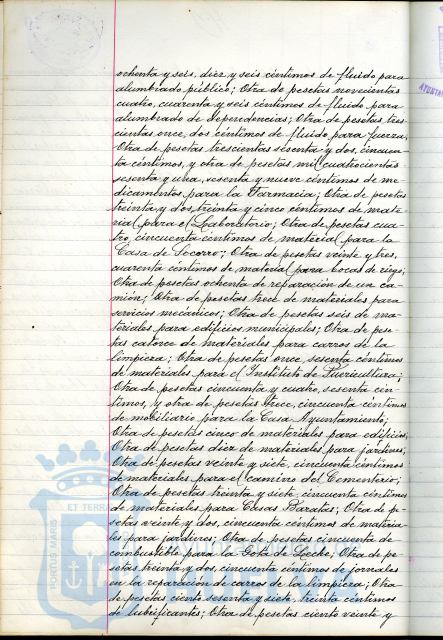 ochenta y seis, diez y seis céntimos de fluido para
alumbrado público; Otra de pesetas novecientas
cuatro, cuarenta y seis céntimos de fluido para
alumbrado de dependencias; Otra de pesetas tres-
cientas once, dos céntimos de fluido para fuerza;
Otra de pesetas trescientas sesenta y dos, cincuen-
ta céntimos, y otra de pesetas mil cuatrocientas
sesenta y una, sesenta y nueve céntimos de me-
dicamentos para la Farmacia; Otra de pesetas
treinta y dos, treinta y cinco céntimos de mate-
rial para el Laboratorio; Otra de pesetas cua-
tro, cincuenta céntimos de material para la
Casa de Socorro; Otra de pesetas veinte y tres,
cuarenta céntimos de material para bocas de riego;
Otra de pesetas ochenta de reparación de un ca-
mión; Otra de pesetas trece de materiales para
servicios mecánicos; Otra de pesetas seis de ma-
teriales para edificios municipales; Otra de pese-
tas catorce de materiales para carros de la
limpieza; Otra de pesetas once, sesenta céntimos
de materiales para el Instituto de Puericultura;
Otra de pesetas cincuenta y cuatro, sesenta cén-
timos, y otra de pesetas trece, cincuenta céntimos
de mobiliario para la Casa Ayuntamiento;
Otra de pesetas cinco de materiales para edificios;
Otra de pesetas diez de materiales para jardines;
Otra de pesetas veinte y siete, cincuenta céntimos
de materiales para el camino del Cementerio;
Otra de pesetas treinta y siete, cincuenta céntimos
de materiales para Casas Baratas; Otra de pe-
setas veinte y dos, cincuenta céntimos de materia-
les para jardines; Otra de pesetas cincuenta de
combustible para la Gota de Leche; Otra de pe-
setas treinta y dos, cincuenta céntimos de jornales
en la reparación de carros de la limpieza; Otra
de pesetas ciento sesenta y siete, treinta céntimos
de lubrificantes; Otra de pesetas ciento veinte y
ET TERRA
PORTUS MARIS